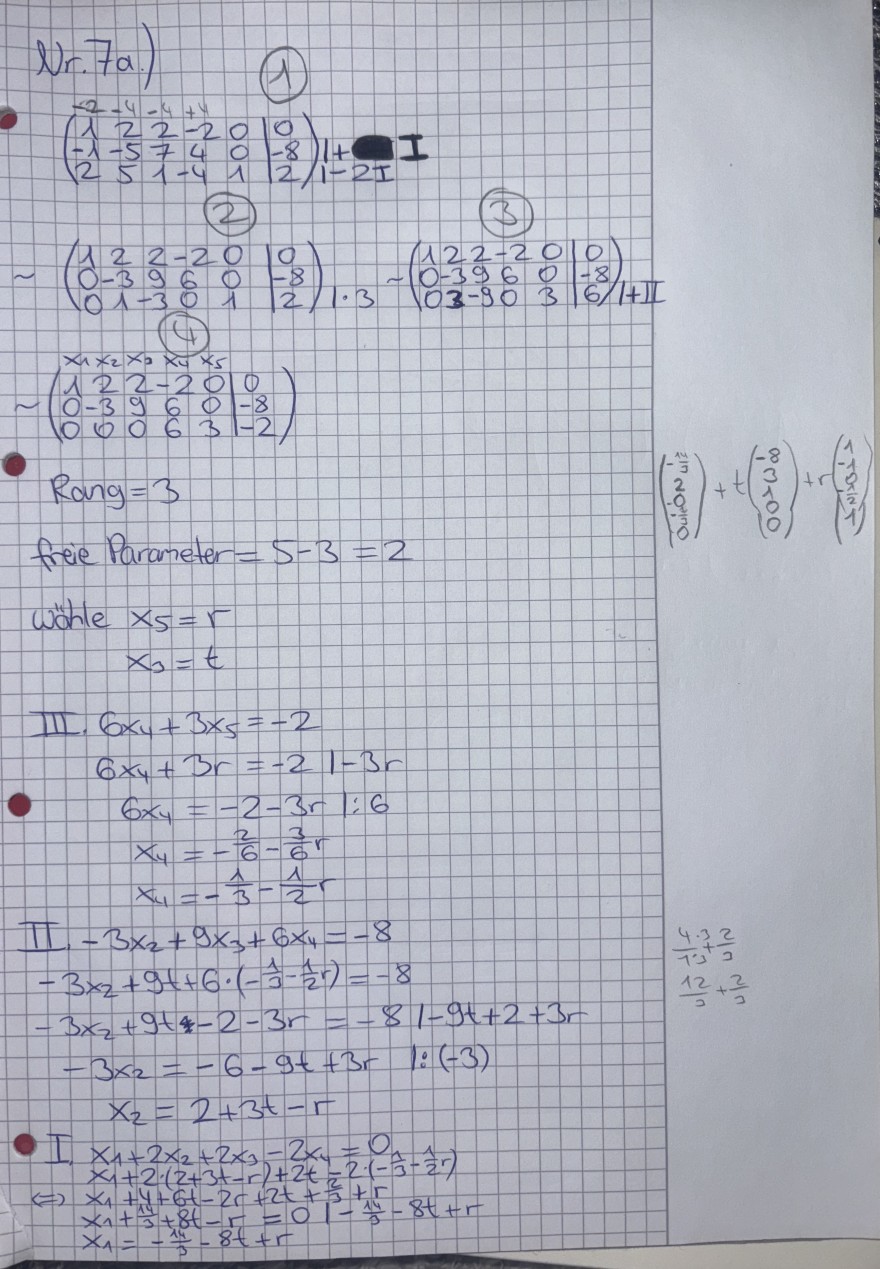 Nr. 7a.)
①
-2 -4 -4 +4
(1 2 2 -2 0 | 0)
(-1 -5 7 4 0 | -8) | + I
(2 5 1 -4 1 | 2) | -2I
②
~ (1 2 2 -2 0 | 0)
(0 -3 9 6 0 | -8)
(0 1 -3 0 1 | 2) | ·3
③
~ (1 2 2 -2 0 | 0)
(0 -3 9 6 0 | -8)
(0 3 -9 0 3 | 6) | +II
④
x₁ x₂ x₃ x₄ x₅
~ (1 2 2 -2 0 | 0)
(0 -3 9 6 0 | -8)
(0 0 0 6 3 | -2)
Rang = 3
freie Parameter = 5-3 = 2
wähle x₅ = r
x₃ = t
III. 6x₄ + 3x₅ = -2
6x₄ + 3r = -2 | -3r
6x₄ = -2 - 3r | : 6
x₄ = -2/6 - 3/6 r
x₄ = -1/3 - 1/2 r
II. -3x₂ + 9x₃ + 6x₄ = -8
-3x₂ + 9t + 6·(-1/3 - 1/2 r) = -8
-3x₂ + 9t - 2 - 3r = -8 | -9t + 2 + 3r
-3x₂ = -6 - 9t + 3r | : (-3)
x₂ = 2 + 3t - r
I. x₁ + 2x₂ + 2x₃ - 2x₄ = 0
x₁ + 2·(2 + 3t - r) + 2t - 2·(-1/3 - 1/2 r)
⇔ x₁ + 4 + 6t - 2r + 2t + 2/3 + r
x₁ + 14/3 + 8t - r = 0 | - 14/3 - 8t + r
x₁ = -14/3 - 8t + r
+ t (-8 3 1 0 0) + r (1 -1 0 -1/2 1)
4·3/1·3 + 2/3
12/3 + 2/3